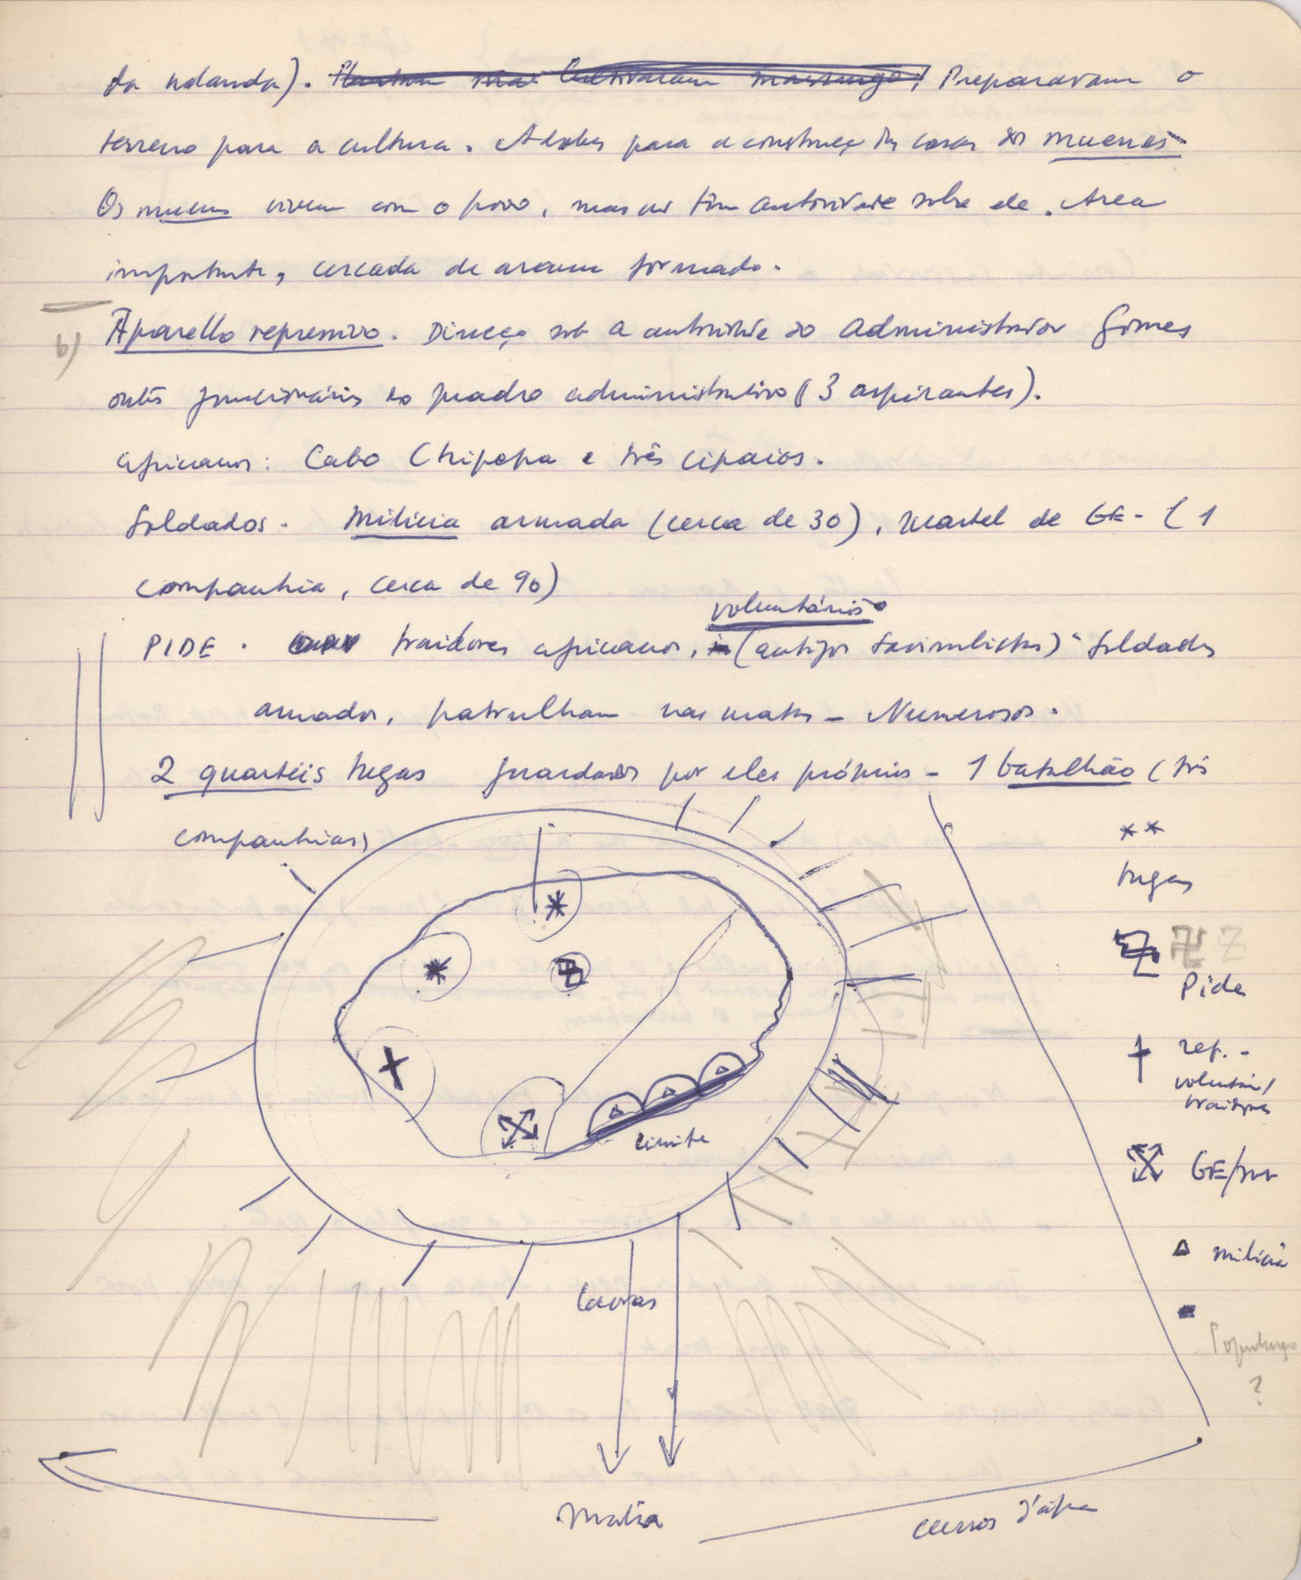 da ndanda). Preparavam o
terreno para a cultura. Adobes para a construção das casas dos muenes
Os muenes vivem com o povo, mas não têm autoridade sobre ele. Area
importante, cercada de arame farpado.
b) Aparelho repressivo. Direcção sob a autoridade do administrador Gomes
outros funcionários do quadro administrativo (3 aspirantes).
africanos: Cabo Chipopa e três cipaios.
Soldados. Milicia armada (cerca de 30), quartel de GE - (1
companhia, cerca de 90)
voluntários
PIDE. traidores africanos, (antigos Savimbistas) Soldados
armados, patrulham nas matas - Numerosos.
2 quartéis tugas guardados por eles próprios - 1 batalhão (três
companhias)
tugas
Pide
ref. -
voluntários/
traidores
limite
GE/
milicia
lavras
População
?
Mata
cursos d'água